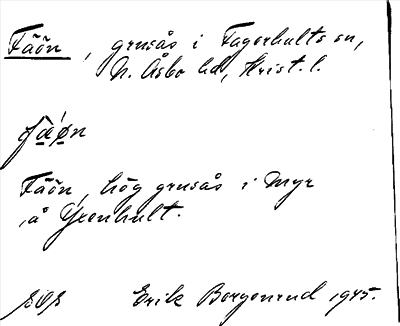 Fäön, grusås i Fagerhults sn,
N. Åsbo hd, Krist. l.
Fäön, hög grusås i Myr
å Grenhult.
Erik Borgenrud 1945.